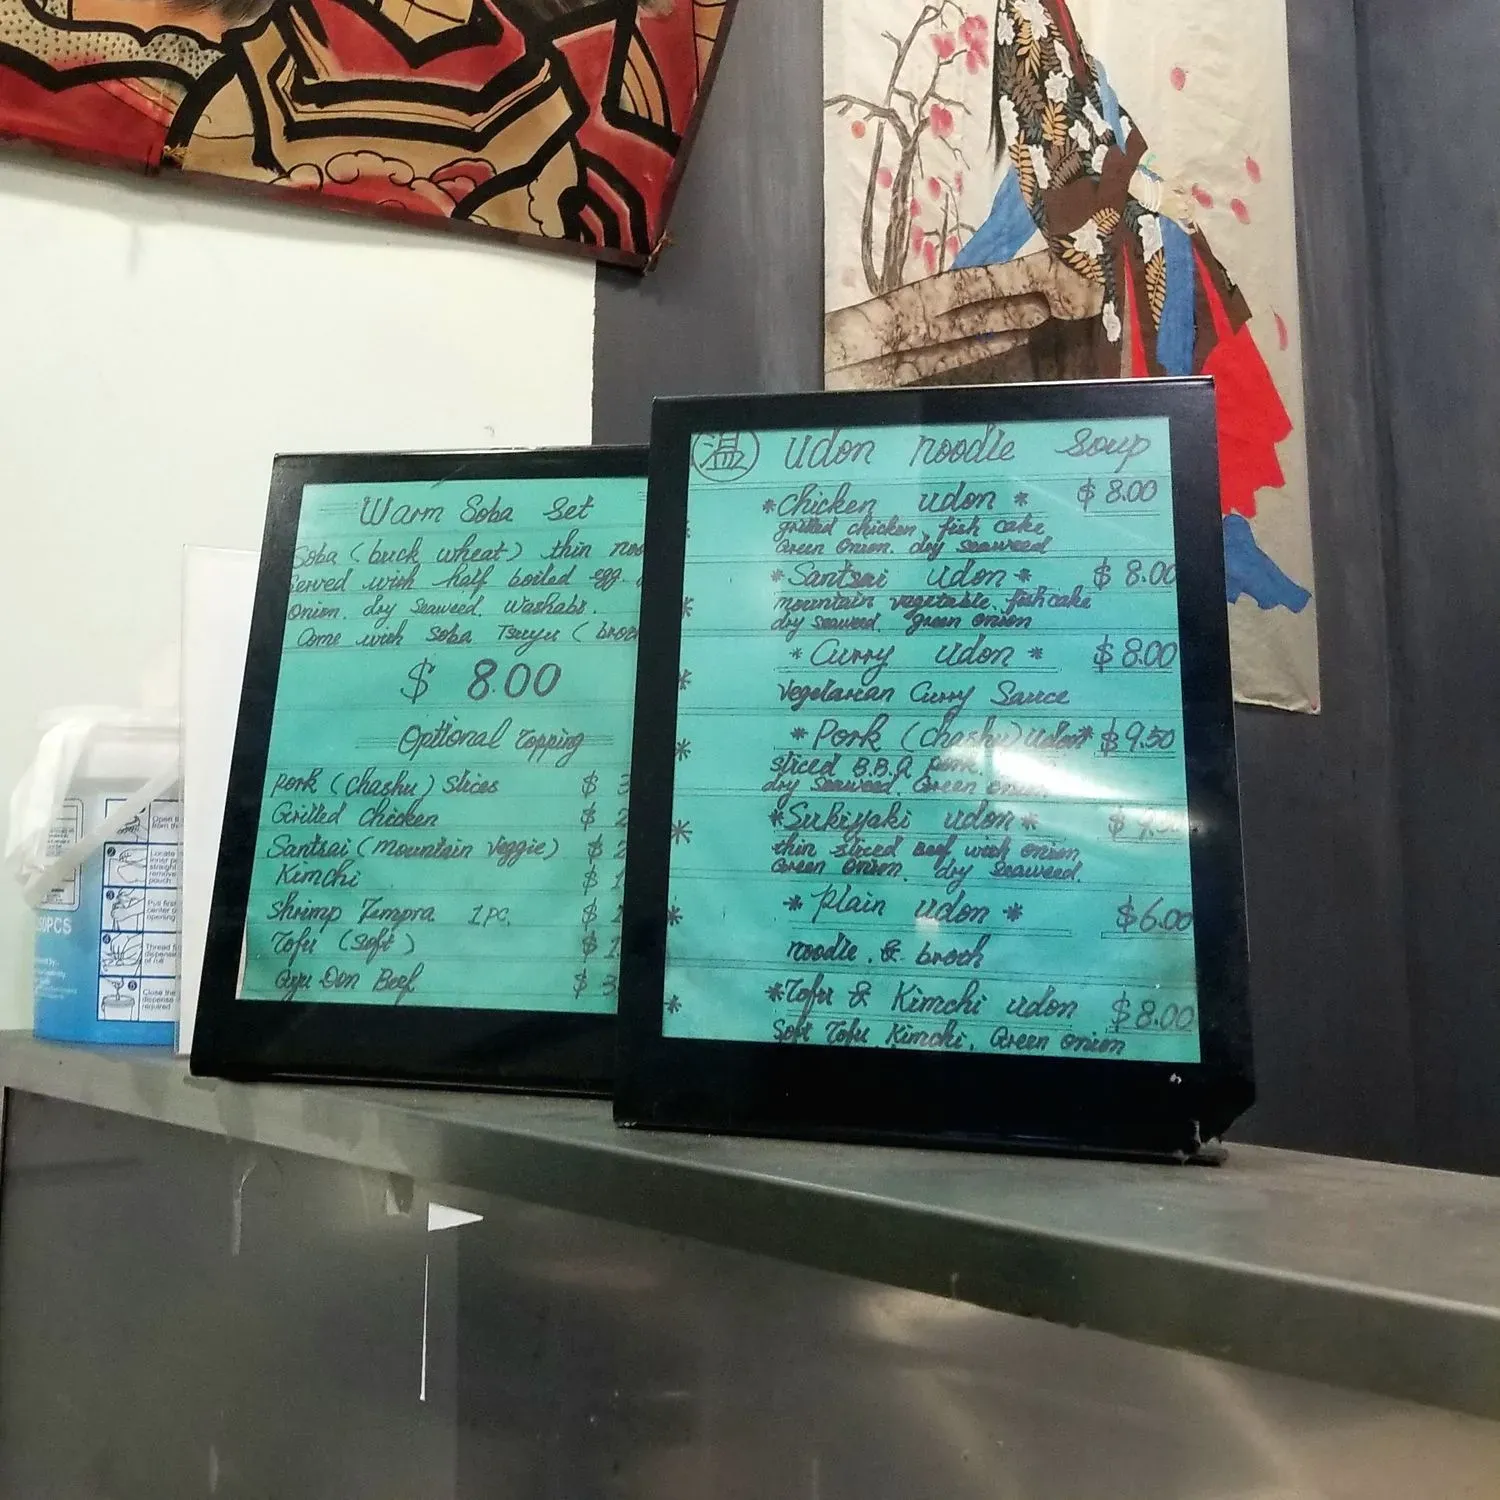 Warm Soba Set
Soba (buck wheat) thin
Served with half boiled egg.
Onion. dry Seaweed. Washabi.
Come with Soba Tsuyu (
$ 8.00
Optional Topping
Pork (Chashu) Slices $ 3
Grilled Chicken $ 2
Santsai (mountain Veggie) $ 2
Kimchi $ 1
Shrimp Tempra 1 PC. $
Tofu (Soft) $ 1
Gyu Don Beef $ 3
温 Udon noodle Soup
* Chicken udon * $ 8.00
grilled chicken, fish cake
Green Onion. dry seaweed
* Santsai Udon * $ 8.00
mountain vegetable. fish cake
dry seaweed. green onion
* Curry Udon * $ 8.00
Vegetarian Curry Sauce
* Pork (chashu) udon * $ 9.50
sliced B.B.Q pork.
dry Seaweed. Green onion
* Sukiyaki udon * $
thin sliced Beef with onion
Green Onion. dry Seaweed.
* Plain udon * $ 6.00
noodle & broth
* Tofu & Kimchi udon $ 8.00
Soft Tofu Kimchi. Green onion
50PCS